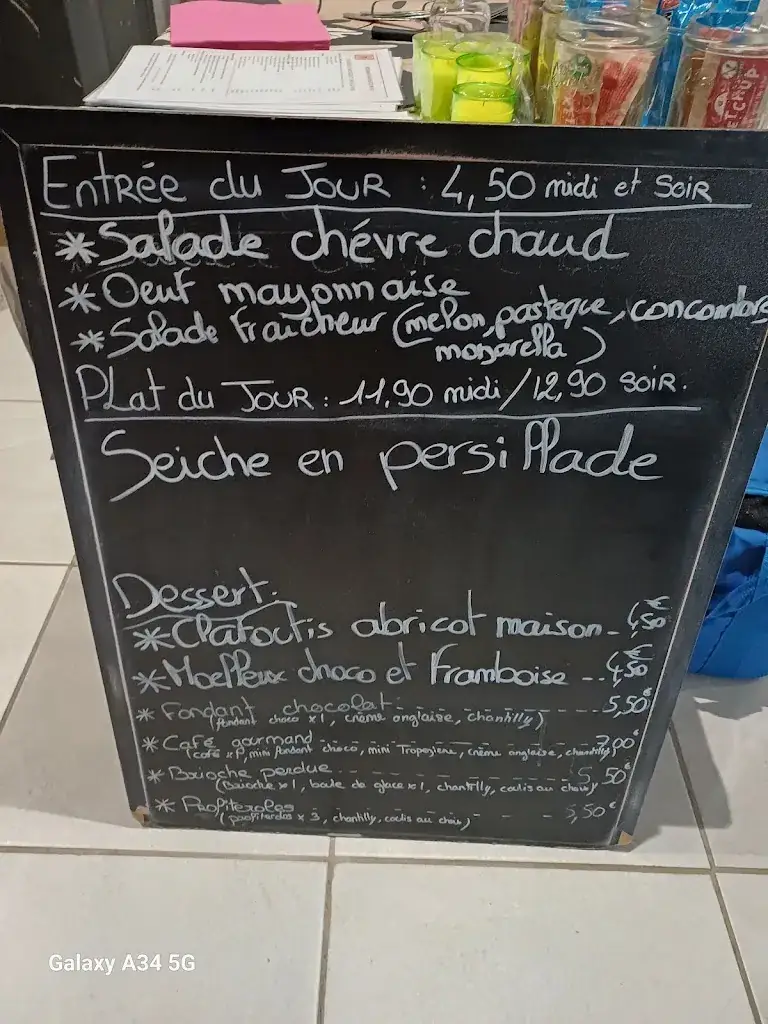 ENTRÉE du JOUR : 4,50 midi et SOIR
* Salade chévre chaud
* Oeuf mayonnaise
* Salade fraîcheur (melon, pasteque, concombre
mozarella)
PLat du JOUR : 11,90 midi / 12,90 SOIR.
Seiche en persillade
Dessert.
* Clafoutis abricot maison - 4,50€
* Moelleux choco et framboise - - 4,50€
* Fondant chocolat - - - - - - 5,50€
(fondant choco x1, crème anglaise, chantilly)
* Café gourmand - - - - - - 7,00€
(café x1, mini fondant choco, mini Tropezienne, crème anglaise, chantilly)
* Brioche perdue - - - - - - 5,50€
(Brioche x1, boule de glace x1, chantilly, coulis au choix)
* Profiteroles - - - 5,50€
(profiteroles x 3, chantilly, coulis au choix)
Galaxy A34 5G